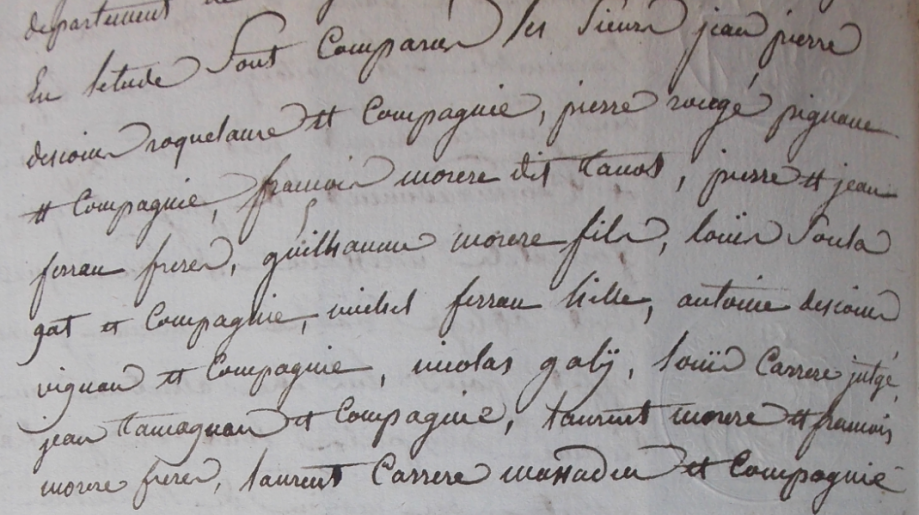 departement de
En letude Sont Comparus les Sieurs jean pierre
descoins roquelaure et Compagnie, pierre rougé pignaux
et Compagnie, francois morere dit tanos, pierre et jean
ferran freres, guilhaume morere fils, louis Soula
gat et Compagnie, michel ferran lille, antoine descoins
vignau et Compagnie, nicolas galÿ, louis Carrere jutgé,
jean tamagnan et Compagnie, laurent morere et francois
morere freres, laurent Carrere massadin et Compagnie